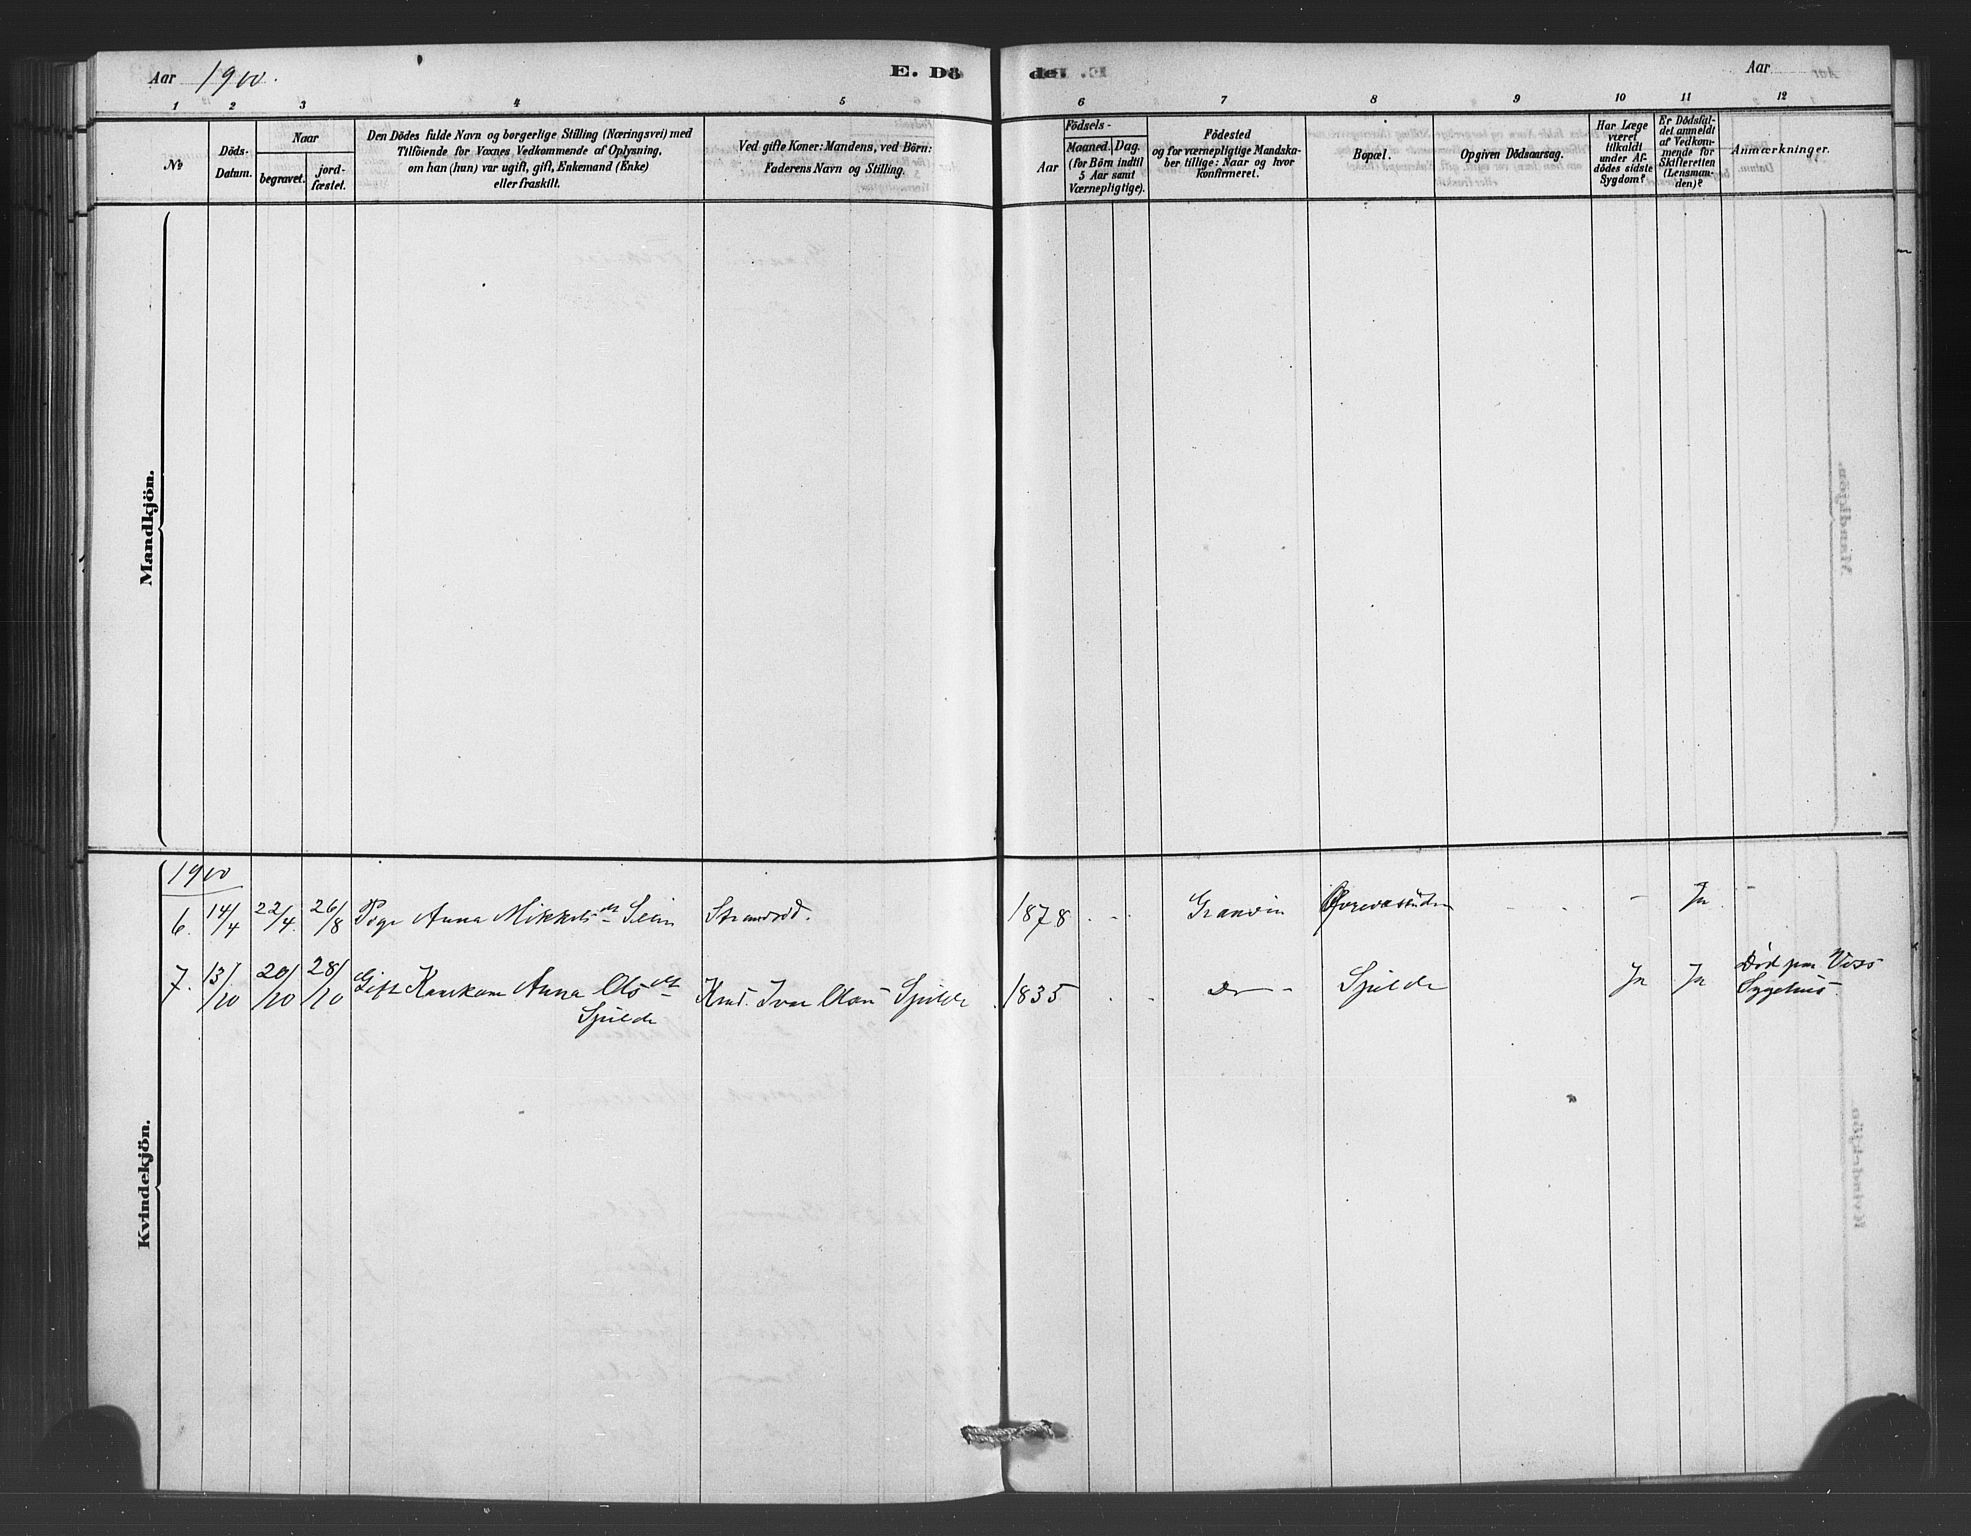 Aar 1900.
E. Dö
de
Aar
1 2 3 4 5 6 7 8 9 10 11 12
№
Döds-
Datum.
Naar
begravet.
jord-
fæstet.
Den Dödes fulde Navn og borgerlige Stilling (Næringsvei) med
Tilföiende for Voxnes Vedkommende af Oplysning,
om han (hun) var ugift, gift, Enkemand (Enke)
eller fraskilt.
Ved gifte Koner: Mandens, ved Börn:
Faderens Navn og Stilling.
Födsels-
Aar
Maaned. Dag.
(for Börn indtil
5 Aar samt
Værnepligtige).
Födested
og for værnepligtige Mandska-
ber tillige: Naar og hvor
konfirmeret.
Bopæl.
Opgiven Dödsaarsag.
Har Læge
været
tilkaldt
under Af-
dödes sidste
Sygdom?
Er Dödsfal-
det anmeldt
af Vedkom-
mende for
Skifteretten
(Lensman-
den)?
Anmærkninger.
Mandkjön.
Kvindekjön.
1900
6. 14/4 22/4. 26/8 Pige Anna Mikkelsdt Seim 1878 Granvin - Ja -
7. 13/10 20/10 28/10 Gift Kaarkone Anna Olsdt Kmd. Ivar Olsen Spilde 1835 Do Spilde Ja Ja Död paa Voss
Spilde Sygehus.